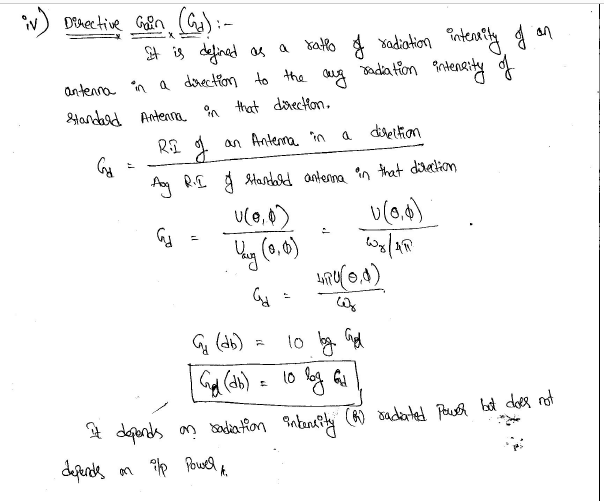 iv) Directive Gain (Gd) :-
It is defined as a ratio of radiation intensity of an
antenna in a direction to the avg radiation intensity of
standard Antenna in that direction.
Gd = R.I of an Antenna in a direction / Avg R.I of standard antenna in that direction
Gd = U(θ,φ) / Uavg(θ,φ) = U(θ,φ) / ωr/4π .
Gd = 4πU(θ,φ) / ωr
Gd (db) = 10 log Gd
Gd (db) = 10 log Gd
It depends on radiation intensity (R) radiated Power but does not
depends on i/p Power.